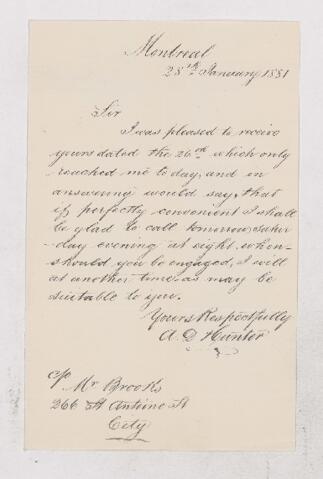 Montreal
28th January 1881
Sir
I was pleased to receive
yours dated the 26nd which only
reached me to day, and in
answering would say, that
if perfectly convenient I shall
be glad to call tomorrow, satur-
day evening at eight, when
should you be engaged, I will
at another time as may be
suitable to you.
Yours Respectfully
A. D Hunter
c/o Mr Brooks
266 St Antoine St
City